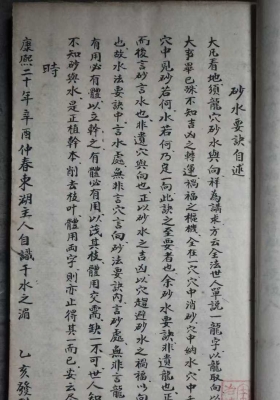 砂水要訣自述
大凡看地須龍穴砂水與向祥為講求方云全法世人單説一龍字以龍取向以
大事畢已殊不知吉凶之轉運禍福之樞機全在一穴穴中消砂穴中納水穴中
穴中見砂若何水若何乃定一向此訣之至要者也余砂水要訣非遺龍也正
而後言砂言水也非遺穴與向也正以砂水之吉凶以穴趨避砂水之禍福以向
也故水法要訣中言水處無非言穴言向砂法要訣内言砂處無非言龍
有用必有體以立幹之有體必有用以茂其枝體用交需缺一不可世人知
不知砂與水是正植幹本削去枝葉體用兩字則亦止得其一而已安云全
時
康熙二十年辛酉仲春東湖主人自識于水之湄
乙亥發